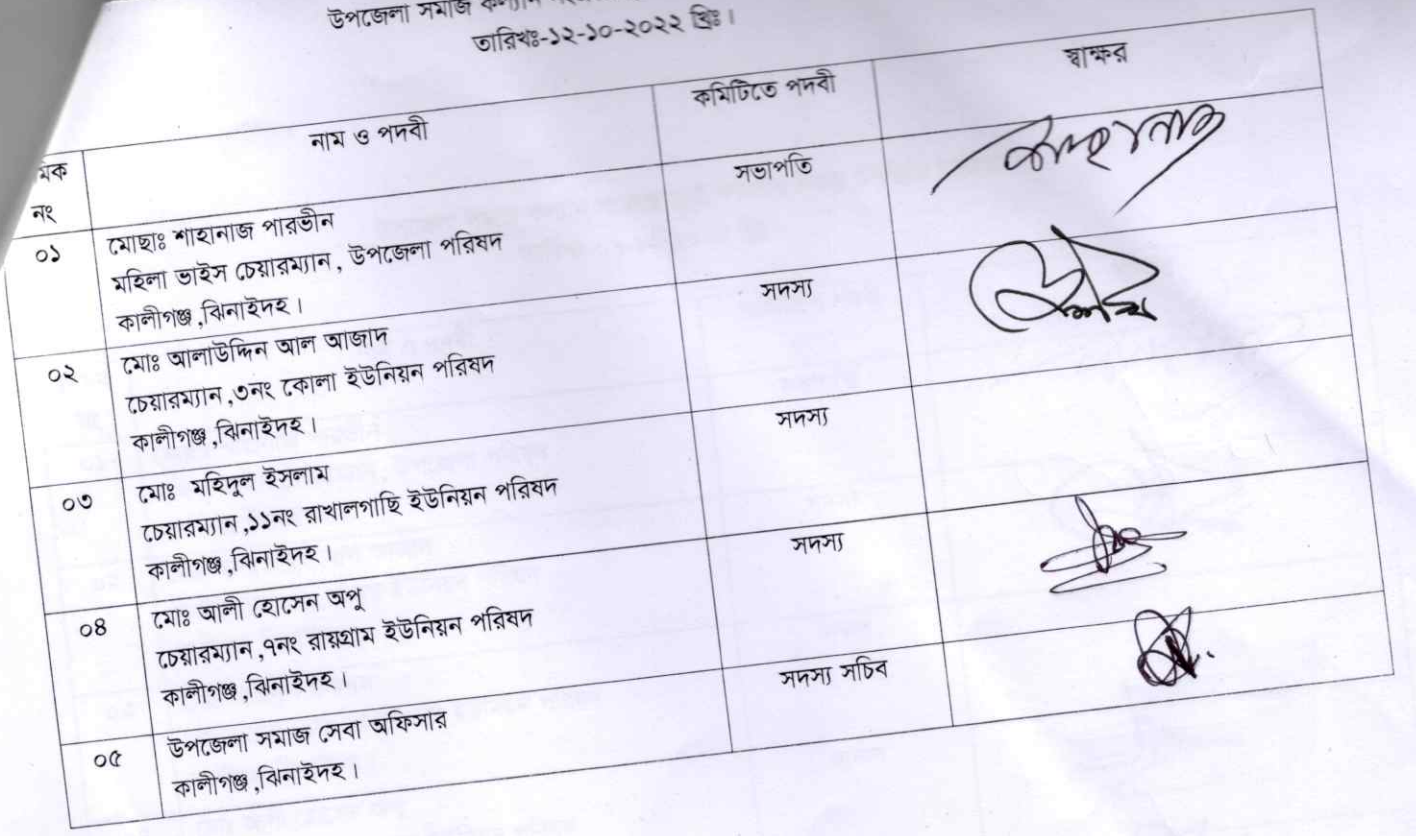 উপজেলা সমাজ কল্যাণ
তারিখঃ-১২-১০-২০২২ খ্রিঃ।
মিক নং নাম ও পদবী কমিটিতে পদবী স্বাক্ষর
০১ মোছাঃ শাহানাজ পারভীন সভাপতি
মহিলা ভাইস চেয়ারম্যান, উপজেলা পরিষদ
কালীগঞ্জ,ঝিনাইদহ।
০২ মোঃ আলাউদ্দিন আল আজাদ সদস্য
চেয়ারম্যান,৩নং কোলা ইউনিয়ন পরিষদ
কালীগঞ্জ,ঝিনাইদহ।
০৩ মোঃ মহিদুল ইসলাম সদস্য
চেয়ারম্যান,১১নং রাখালগাছি ইউনিয়ন পরিষদ
কালীগঞ্জ,ঝিনাইদহ।
০৪ মোঃ আলী হোসেন অপু সদস্য
চেয়ারম্যান,৭নং রায়গ্রাম ইউনিয়ন পরিষদ
কালীগঞ্জ,ঝিনাইদহ।
০৫ উপজেলা সমাজ সেবা অফিসার সদস্য সচিব
কালীগঞ্জ,ঝিনাইদহ।